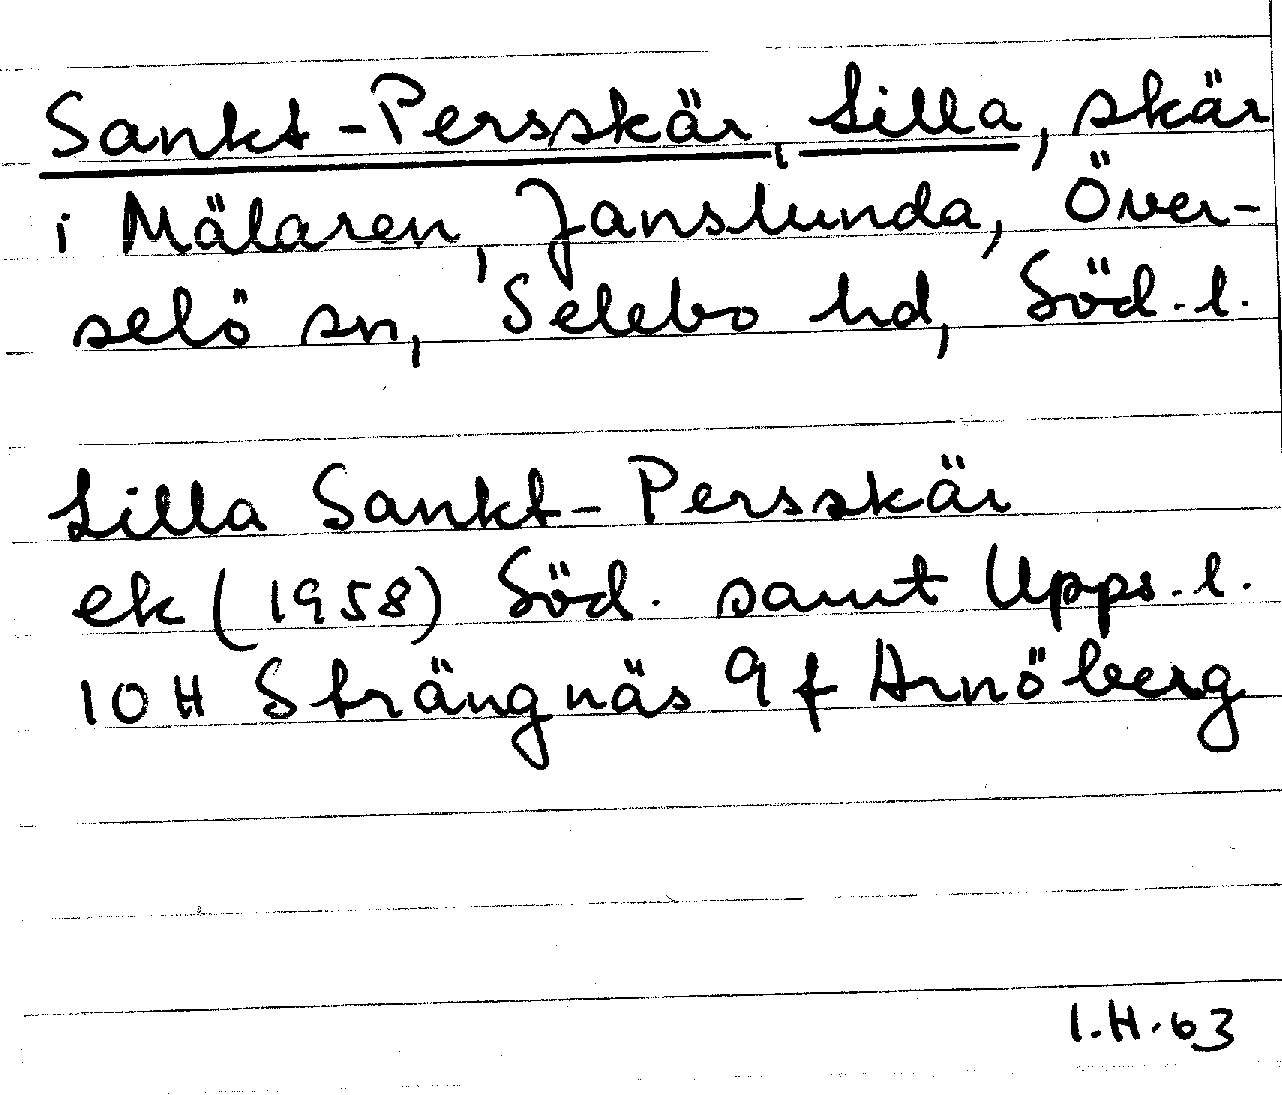 Sankt-Persskär, Lilla, skär
i Mälaren, Janslunda, Över-
selö sn, Selebo hd, Söd.l.
Lilla Sankt-Persskär
ek (1958) Söd. samt Upps.l.
10H Strängnäs 9f Arnöberg
I.H.63